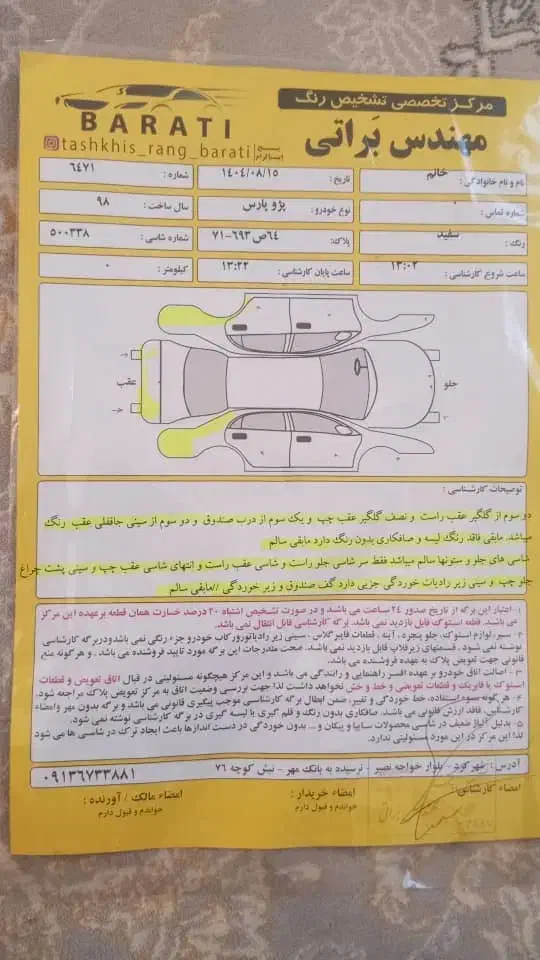 BARATI
tashkhis_rang_barati
پیج اینستاگرام
مرکز تخصصی تشخیص رنگ
مهندس بَراتی
نام و نام خانوادگی: خانم
تاریخ: ۱۴۰۴/۰۸/۱۵
شماره: ۶۴۷۱
شماره تماس: ۰
نوع خودرو: پژو پارس
سال ساخت: ۹۸
رنگ: سفید
پلاک: ۶۴ص۶۹۳-۷۱
شماره شاسی: ۵۰۰۳۳۸
ساعت شروع کارشناسی: ۱۳:۰۲
ساعت پایان کارشناسی: ۱۳:۲۲
کیلومتر: ۰
جلو
عقب
توضیحات کارشناسی:
دو سوم از گلگیر عقب راست و نصف گلگیر عقب چپ و یک سوم از درب صندوق و دو سوم از سینی جاقفلی عقب رنگ
میباشد. مابقی فاقد رنگ لیسه و صافکاری بدون رنگ دارد مابقی سالم
شاسی های جلو و ستونها سالم میباشد فقط سر شاسی جلو راست و شاسی عقب راست و انتهای شاسی عقب چپ و سینی پشت چراغ
جلو چپ و سینی زیر رادیات خوردگی جزیی دارد گف صندوق و زیر خوردگی //مابقی سالم
۱- اعتبار این برگه از تاریخ صدور ۲۴ ساعت می باشد و در صورت تشخیص اشتباه ۳۰ درصد خسارت همان قطعه برعهده این مرکز
می باشد. قطعه استوک قابل بازدید نمی باشد. برگه کارشناسی قابل انتقال نمی باشد.
۲- سپر، لوازم استوک، آینه، قطعات فایبرگلاس، سینی زیر رادیاتور وکاب خودرو جزء رنگی نمی باشد ودربرگه کارشناسی
نوشته نمی شود. قسمتهای زیرقلاب قابل بازدید نمی باشد. صحت مندرجات این برگه مورد تایید فروشنده می باشد. و هرگونه منع
قانونی جهت تعویض پلاک به عهده فروشنده می باشد.
۳- اصالت اتاق خودرو بر عهده افسر راهنمایی و رانندگی می باشد و این مرکز هیچگونه مسئولیتی در قبال اتاق تعویض و قطعات
استوک با فابریک و قطعات تعویضی و خط و خش نخواهد داشت لذا جهت بررسی وضعیت اتاق به مرکز تعویض پلاک مراجعه شود.
۴- هرگونه سوء استفاده، خط خوردگی و تغییر، ضمن ابطال برگه کارشناسی موجب پیگیری قانونی می باشد و برگه بدون مهر و امضاء
کارشناس، فاقد ارزش قانونی می باشد. صافکاری بدون رنگ و قلم گیری یا لیسه گیری در برگه کارشناسی نوشته نمی شود.
۵- بدلیل آلیاژ ضعیف در شاسی محصولات سایپا و پیکان و... بدون خوردگی در دست اندازها باعث ایجاد ترک در شاسی ها می شود
لذا این مرکز در این مورد مسئولیتی ندارد.
آدرس: شهرکرد - بلوار خواجه نصیر - نرسیده به بانک مهر - نبش کوچه ۷۶
۰۹۱۳۶۷۳۳۸۸۱
امضاء کارشناس
امضاء خریدار:
خواندم و قبول دارم
امضاء مالک / آورنده:
خواندم و قبول دارم